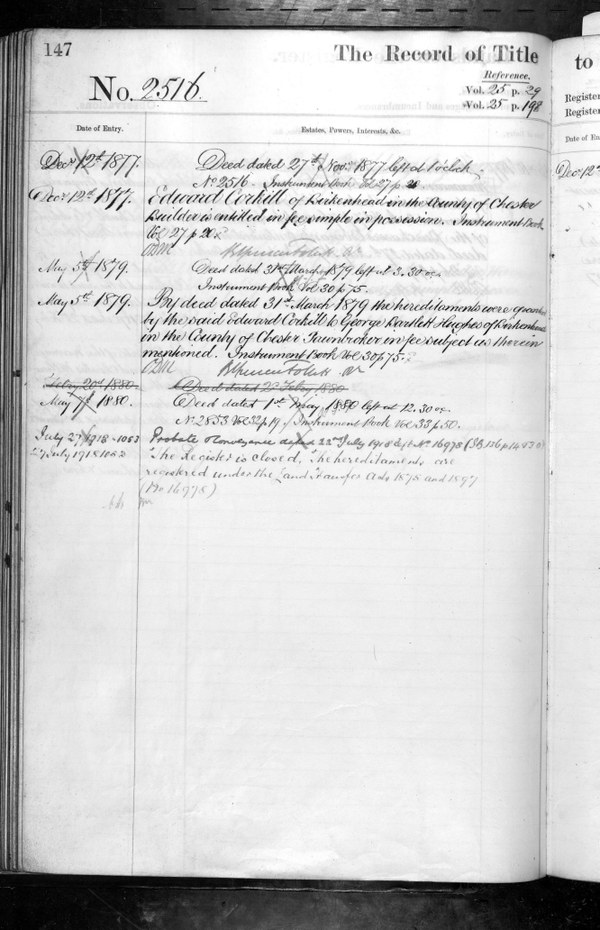 147
The Record of Title
Reference.
No. 2516.
Vol. 25 p. 29
Vol. 25 p. 198
Date of Entry.
Estates, Powers, Interests, &c.
Decr 12th 1877.
Deed dated 27th Novr. 1877 left at
No 2516. Instrument Book Vol. 27 p. 20
Decr 12th 1877.
Edward Corkill of Birkenhead in the County of Chester
Builder is entitled in fee simple in possession. Instrument Book
Vol 27 p 20.
May 5th 1879.
Deed dated 31st March 1879 left at 3.30
Instrument Book Vol 30 p 75.
May 5th 1879.
By deed dated 31st March 1879 the hereditaments were granted
by the said Edward Corkill to George Bartlett Hughes of Birkenhead
in the County of Chester Pawnbroker in fee subject as therein
mentioned. Instrument Book Vol 30 p 75.
Feby 20th 1880.
Deed dated Feby 1880
May 7th 1880.
Deed dated 1st May 1880 left at 12.30
No 2853 Vol 32 p 19. Instrument Book Vol 33 p 50.
July 27 1918
Probate & Conveyance dated 22nd July 1918 No 16978
27 July 1918
The Register is closed. The hereditaments are
registered under the Land Transfer Acts 1875 and 1897
(No 16978)
to
Register
Register
Date of En
Decr 12th